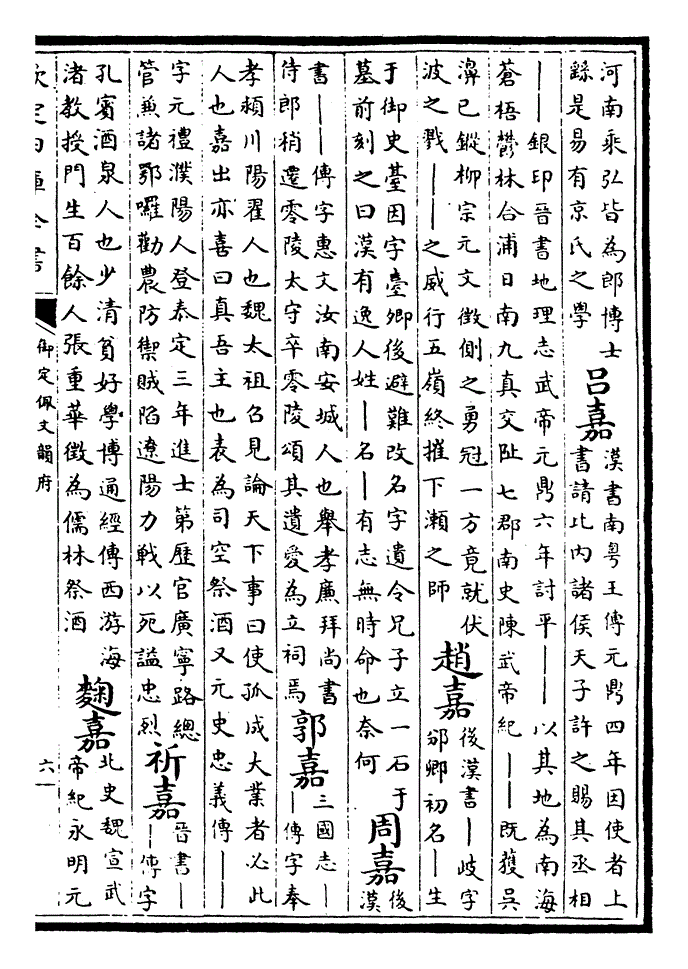 河南乘弘皆為郎博士
繇是易有京氏之學
吕嘉
漢書南粤王傳元鼎四年因使者上
書請比内諸侯天子許之賜其丞相
――銀印晉書地理志武帝元鼎六年討平――以其地為南海
蒼梧鬱林合浦日南九真交阯七郡南史陳武帝紀――既獲吳
濞已鏦柳宗元文徵側之勇冠一方竟就伏
波之戮――之威行五嶺終摧下瀨之師
趙嘉
後漢書―岐字
邠卿初名―生
于御史臺因字臺卿後避難改名字遺令兄子立一石于
墓前刻之曰漢有逸人姓―名―有志無時命也奈何
周嘉
後
漢
書――傳字惠文汝南安城人也舉孝廉拜尚書
侍郎稍遷零陵太守卒零陵頌其遺愛為立祠焉
郭嘉
三國志―
―傳字奉
孝頴川陽翟人也魏太祖召見論天下事曰使孤成大業者必此
人也嘉出亦喜曰真吾主也表為司空祭酒又元史忠義傳――
字元禮濮陽人登泰定三年進士第歷官廣寧路總
管兼諸鄂囉勸農防禦賊陷遼陽力戰以死謚忠烈
祈嘉
晉書―
―傳字
孔賓酒泉人也少清貧好學博通經傳西游海
渚教授門生百餘人張重華徵為儒林祭酒
麴嘉
北史魏宣武
帝紀永明元
欽定四庫全書
御定佩文韻府
六一